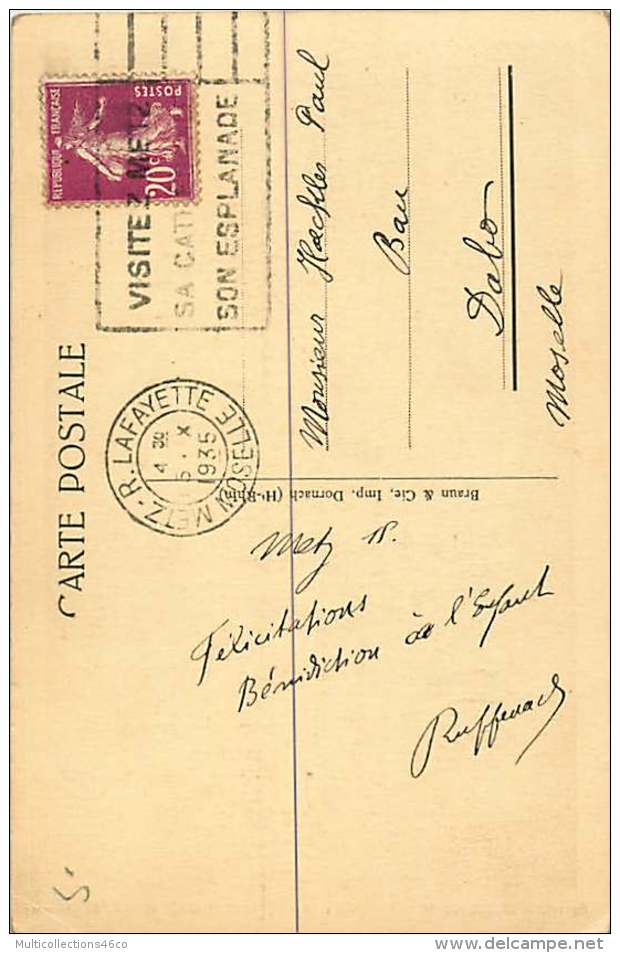 CARTE POSTALE
REPUBLIQUE FRANÇAISE
POSTES
20c
VISITEZ METZ
SA CATH
SON ESPLANADE
METZ-R. LAFAYETTE
MOSELLE
4 30
5 . X
1935
Metz
Félicitations
Bénédiction à l'Enfant
Ruffenach
Braun & Cie, Imp. Dornach (Ht-Rhin)
Monsieur Haeckles Paul
Dabo
Moselle
5.
Multicollections46co
delcampe.net